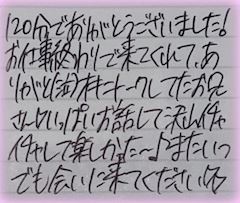 120分でありがとうございました!
お仕事終わりで来てくれて、あ
りがと(泣)オキニトークしてたお兄
さんといっぱいお話して沢山イチャ
イチャして楽しかた〜♪またいつ
でも会いに来てください